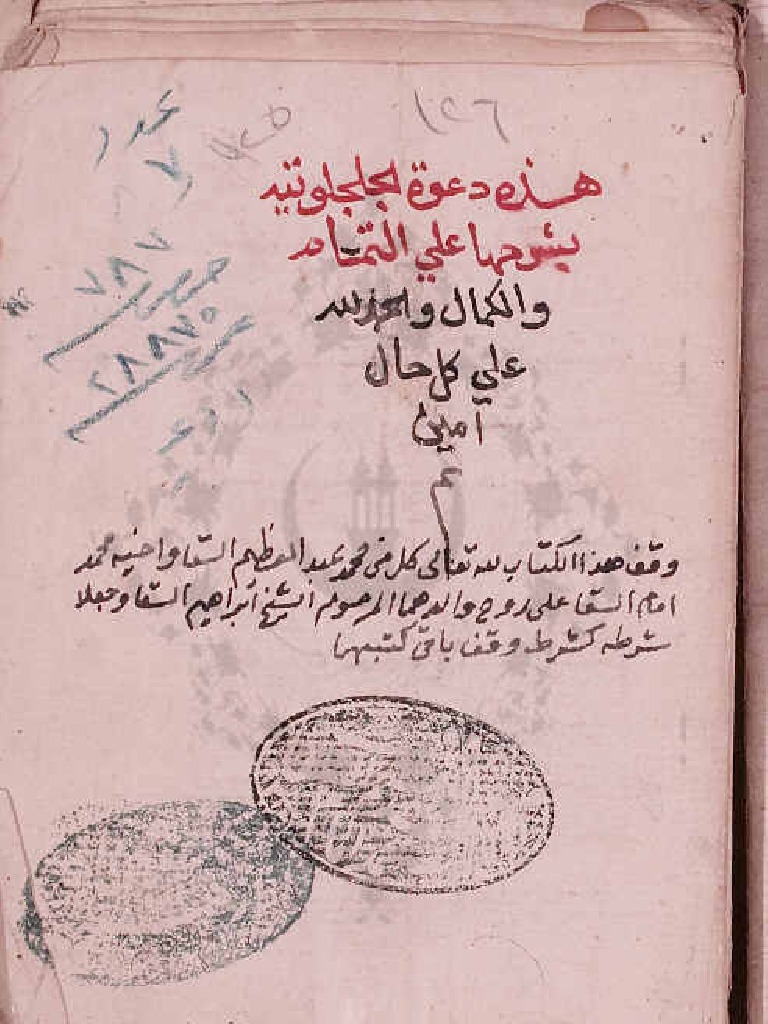 ١٢٦
١٢٥
عدد
٧
هذه دعوة الجلجلوتيه
بشرحها علي التمام
والكمال والحمد لله
علي كل حال
آمين
م
٧٨٧
٢٨٨٧٥
وقف هذا الكتاب لله تعالى كل من محمد عبد العظيم السقا واخيه محمد
امام السقا على روح والدهما المرحوم الشيخ ابراهيم السقا وجعلا
شرطه كشرط وقف باقي كتبهما